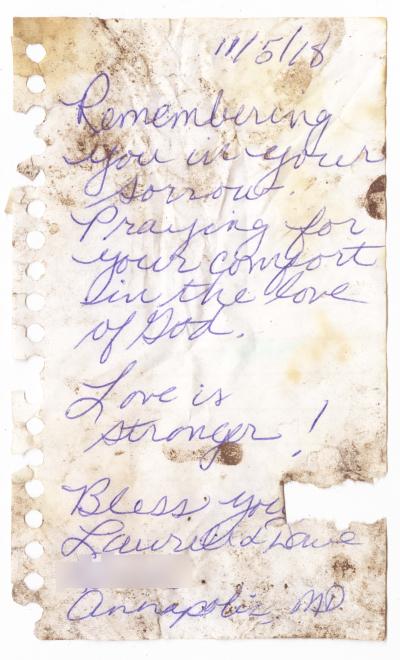 11/5/18
Remembering
you in your
sorrow.
Praying for
your comfort
in the love
of God.
Love is
stronger!
Bless you
Laurie & Dave
Annapolis, MD